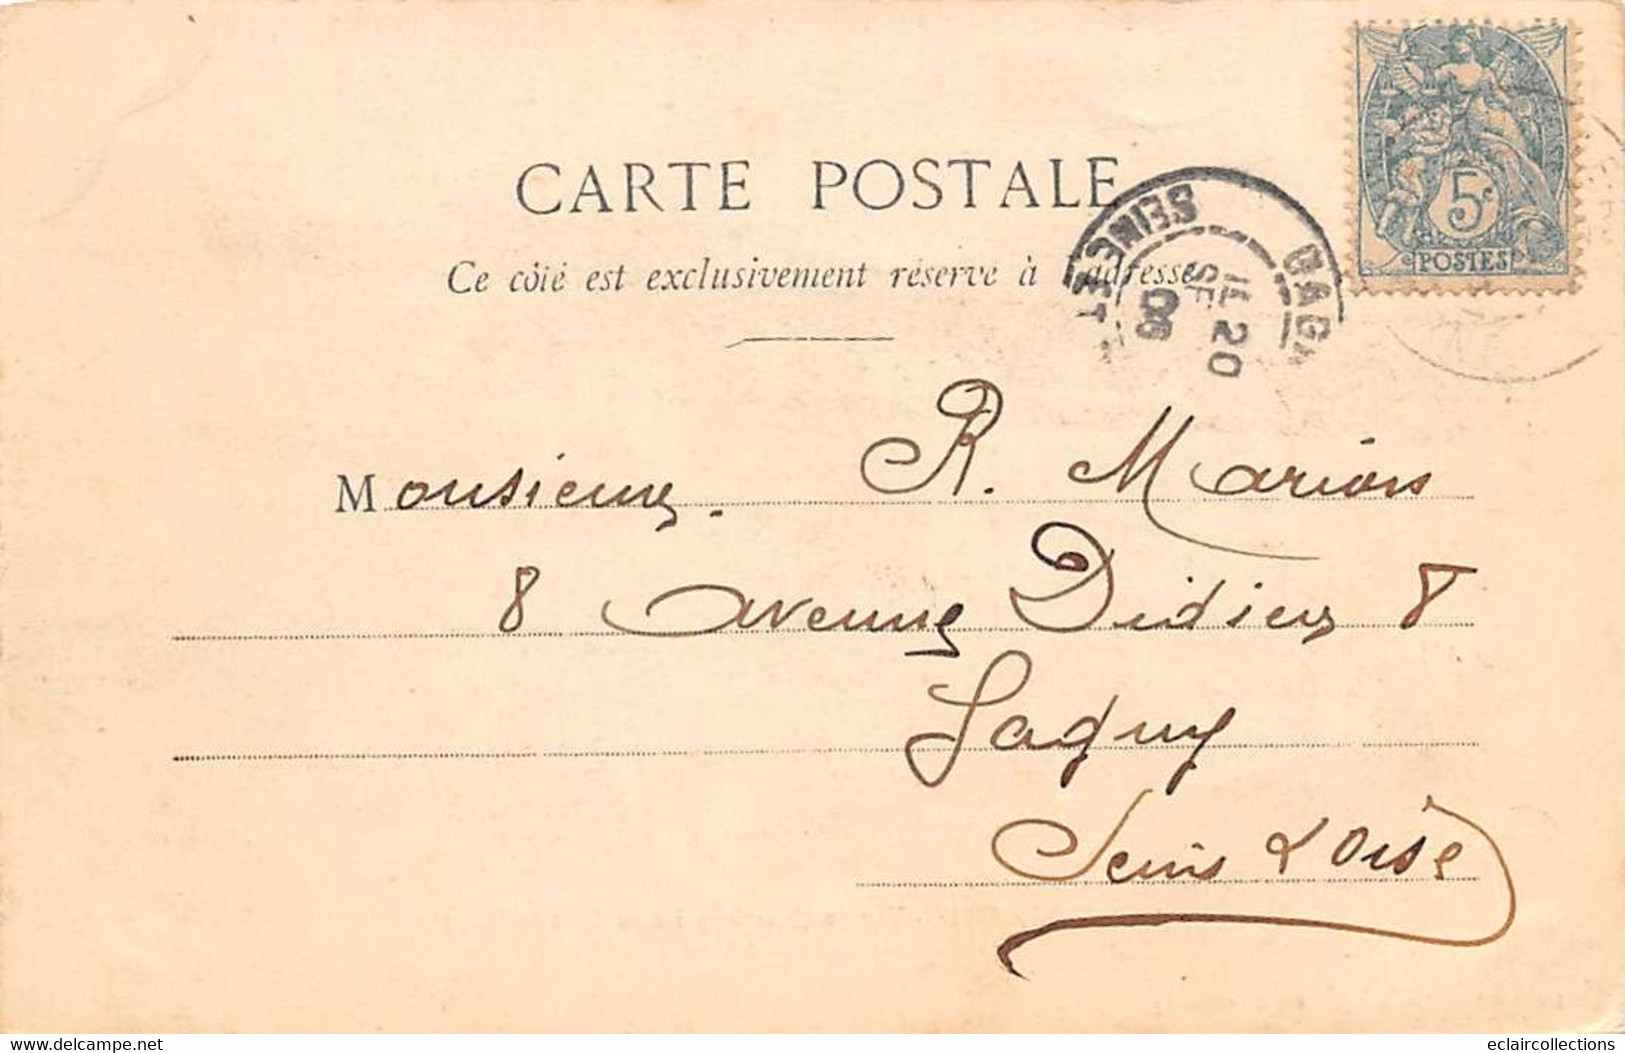 CARTE POSTALE
Ce côté est exclusivement réservé à l'adresse
SEINE ET
GAGN
11 20
SE
06
5c
POSTES
Monsieur. R. Marion
8 avenue Didier 8
Gagny
Seine & Oise
eclaircollections